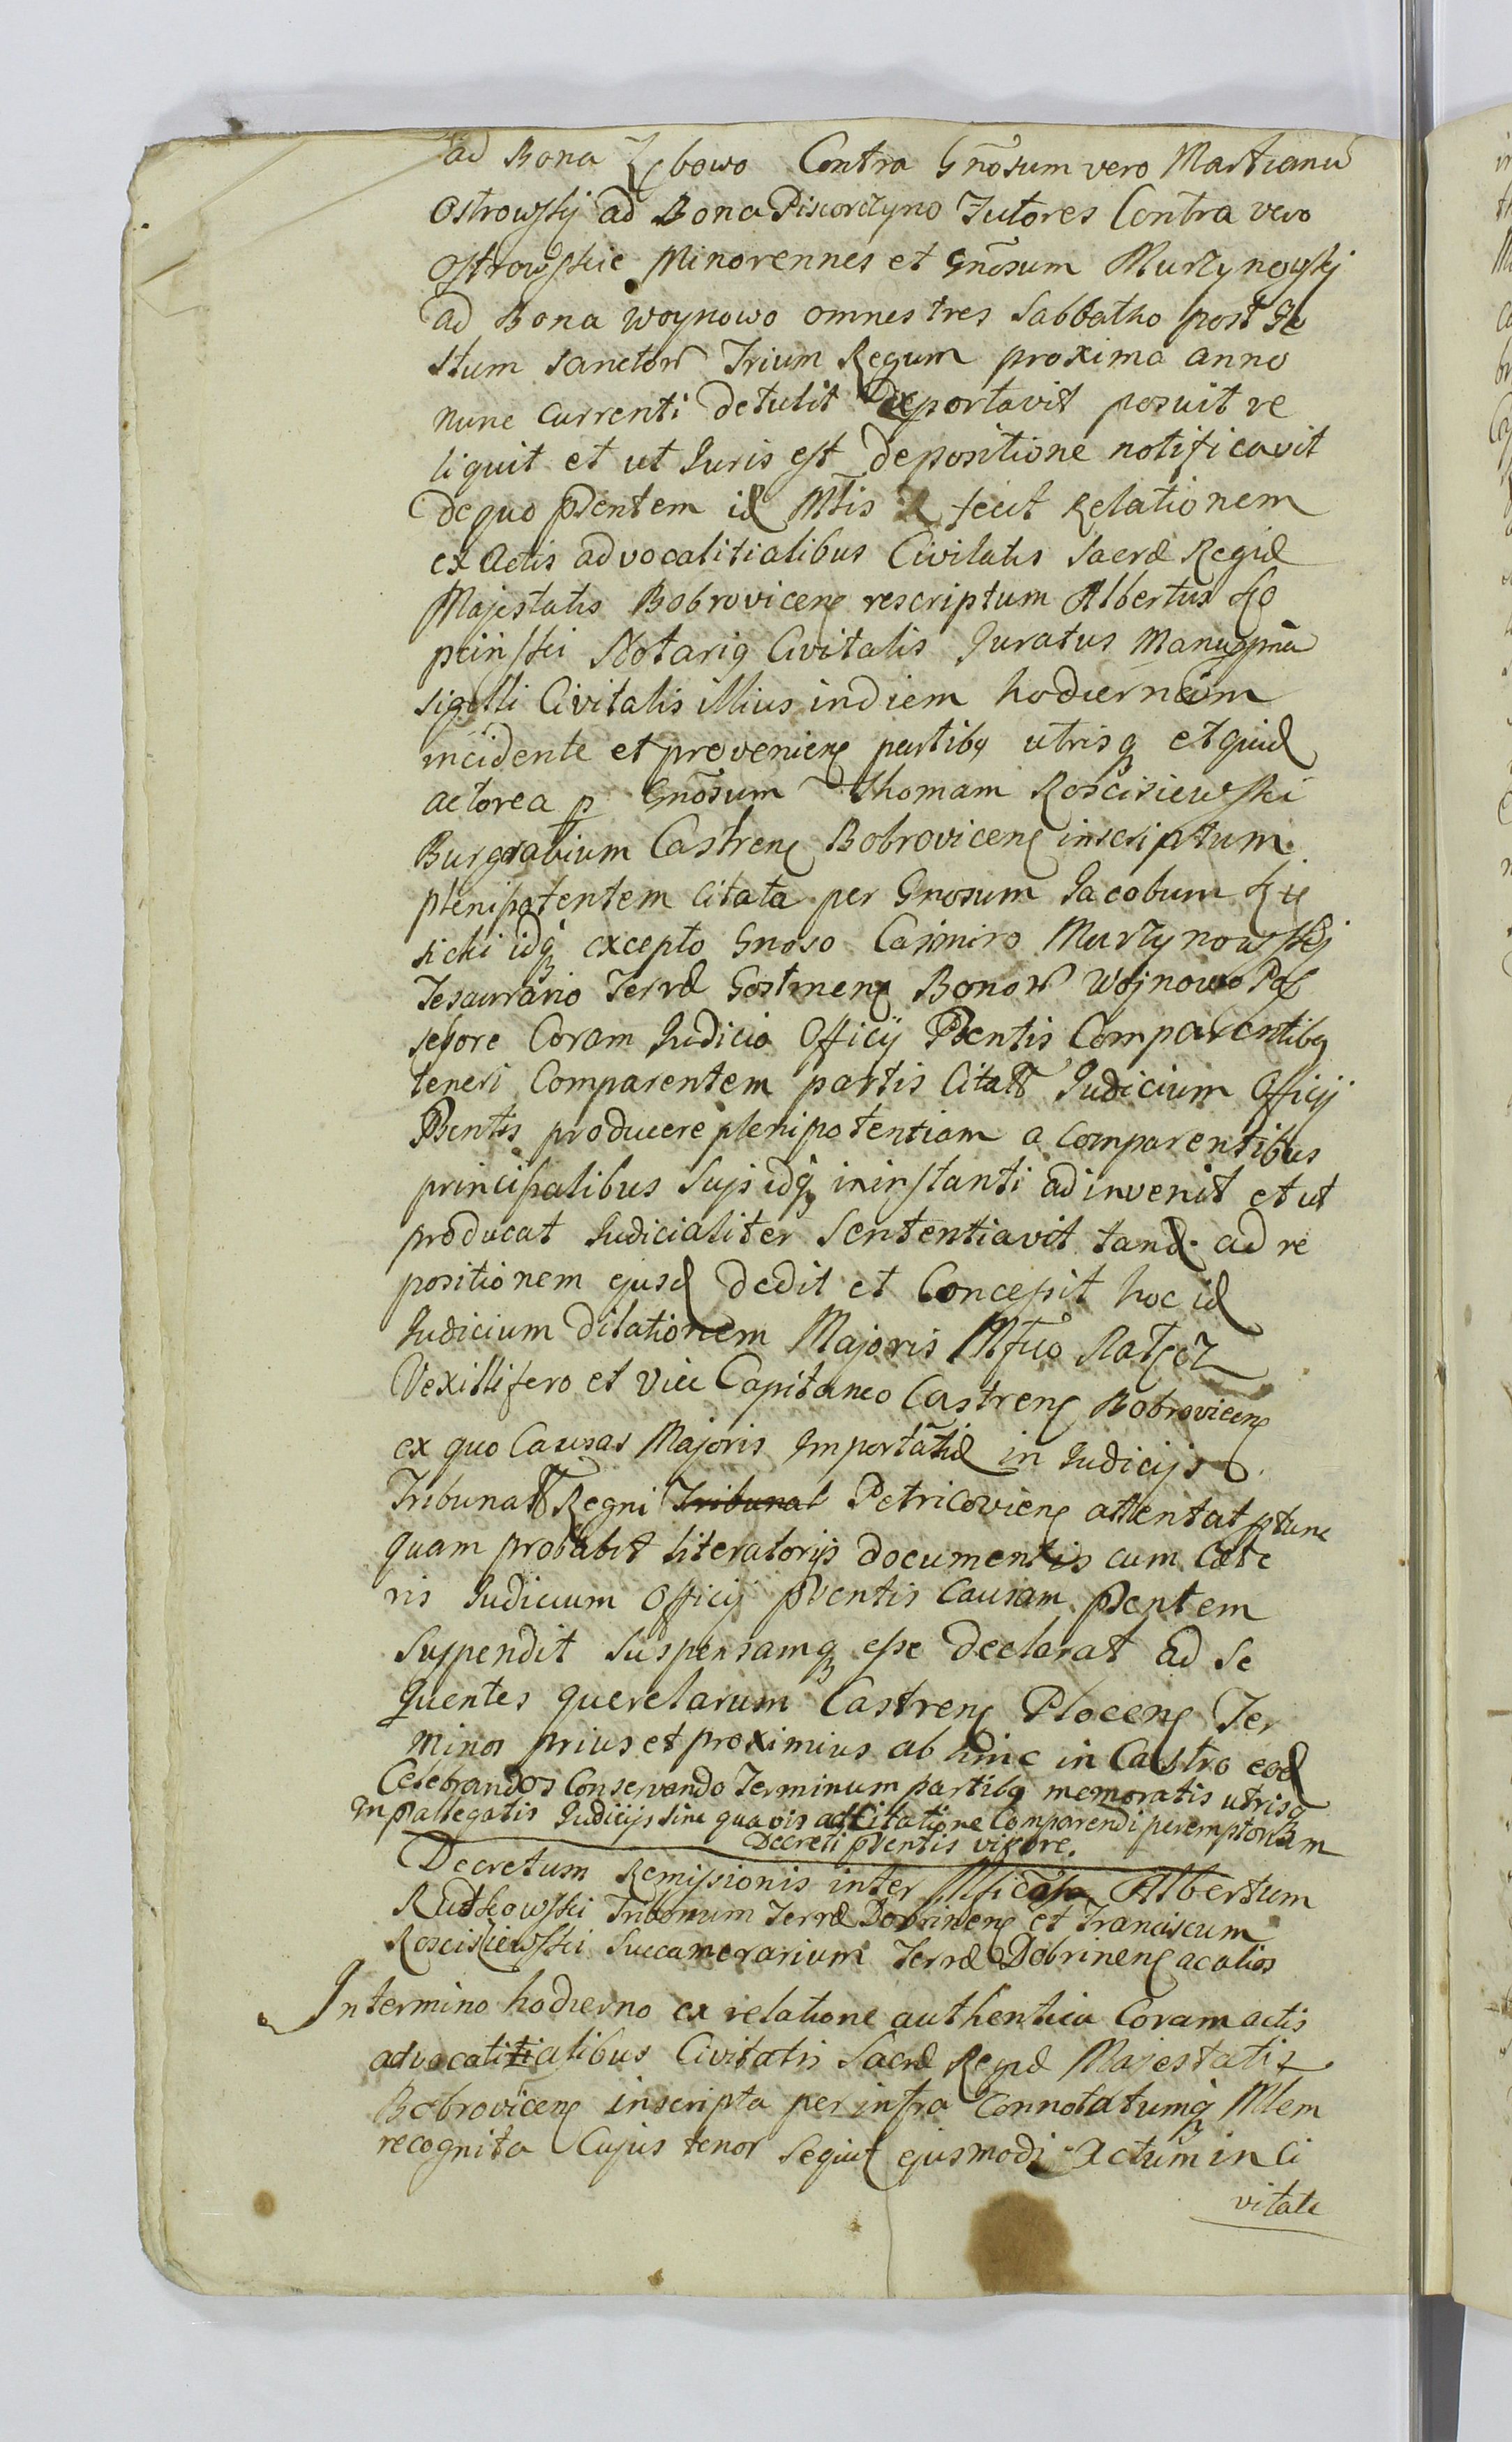 ad Bona Zębowo Contra Gñosum vero Martianū
Ostrowskj ad Bona Piscorzyno Tutores Contra vero
Ostrowskie Minorennes et Gñosum Murzynowskj
ad Bona Woynowo omnes tres Sabbatho post Fe
stum Sanctor Trium Regum proxima anno
nunc currenti detulit deportavit posuit re
liquit et ut Juris est depositione notificavit
de quo pñtem id Mtis fecit Relationem
ex Actis advocatitialibus Civitatis Sacræ Regiæ
Majestatis Bobrovicens rescriptum Albertus Ko
pcinski Notarig Civitatis Juratus Manu ppria
sigilli Civitatis illius in diem hodiernam
incidente et proveniens partibq utrisq et quid
actorea p Gñosum Thomam Rościsiewski
Burgrabium Castrens Bobrovicens inscriptum
plenipotentem Citata per Gnosum Jacobum Ku
sicki idq excepto Gnoso Casimiro Murzynowskj
Tesaurario Terræ Gostinens Bonor Wojnowo Pos
sessore Coram Judicio Officij Pñtis Comparentibq
teneri Comparentem partis Citatæ Judicium Officij
Pñtis producere plenipotentiam a comparentibus
principalibus suis idq in instanti adinvenit et ut
producat Judicialiter Sententiavit tand. ad re
positionem ejusd dedit et Concessit hoc id
Judicium dilationem Majoris Mfico Natęcz
Vexillifero et Vice Capitaneo Castrens Bobrovicens
ex quo Causas Majoris Importãtiæ in Judicijs
Tribunal Regni Tribunal Petricoviens attentat ptunc
quam probabit literatorijs documentis cum Cæte
ris Judicium Officij pñtis Causam pñtem
suspendit suspensamq esse declarat ad se
quentes querelarum Castrens Plocens Ter
minos prius et proximius ab hinc in Castro eod
Celebrandos Conservando Terminum partibq memoratis utrisq
In pallegatis Judicijs sine quavis adcitatione Comparendi peremptorium
Decreti pñtis vigore.
Decretum Remissionis inter Mficos Albertum
Rudkowski Tribunum Terræ Dobrinens et Franciscum
Roscisiewski Succamerarium Terræ Dobrinens ac alios
In termino hodierno ex relatione authentica Coram actis
advocatitialibus Civitatis Sacræ Regiæ Majestatis
Bobrovicens inscripta per infra Connotatumq Mlem
recognita Cujus tenor sequit ejusmodi Actum in Ci
vitate